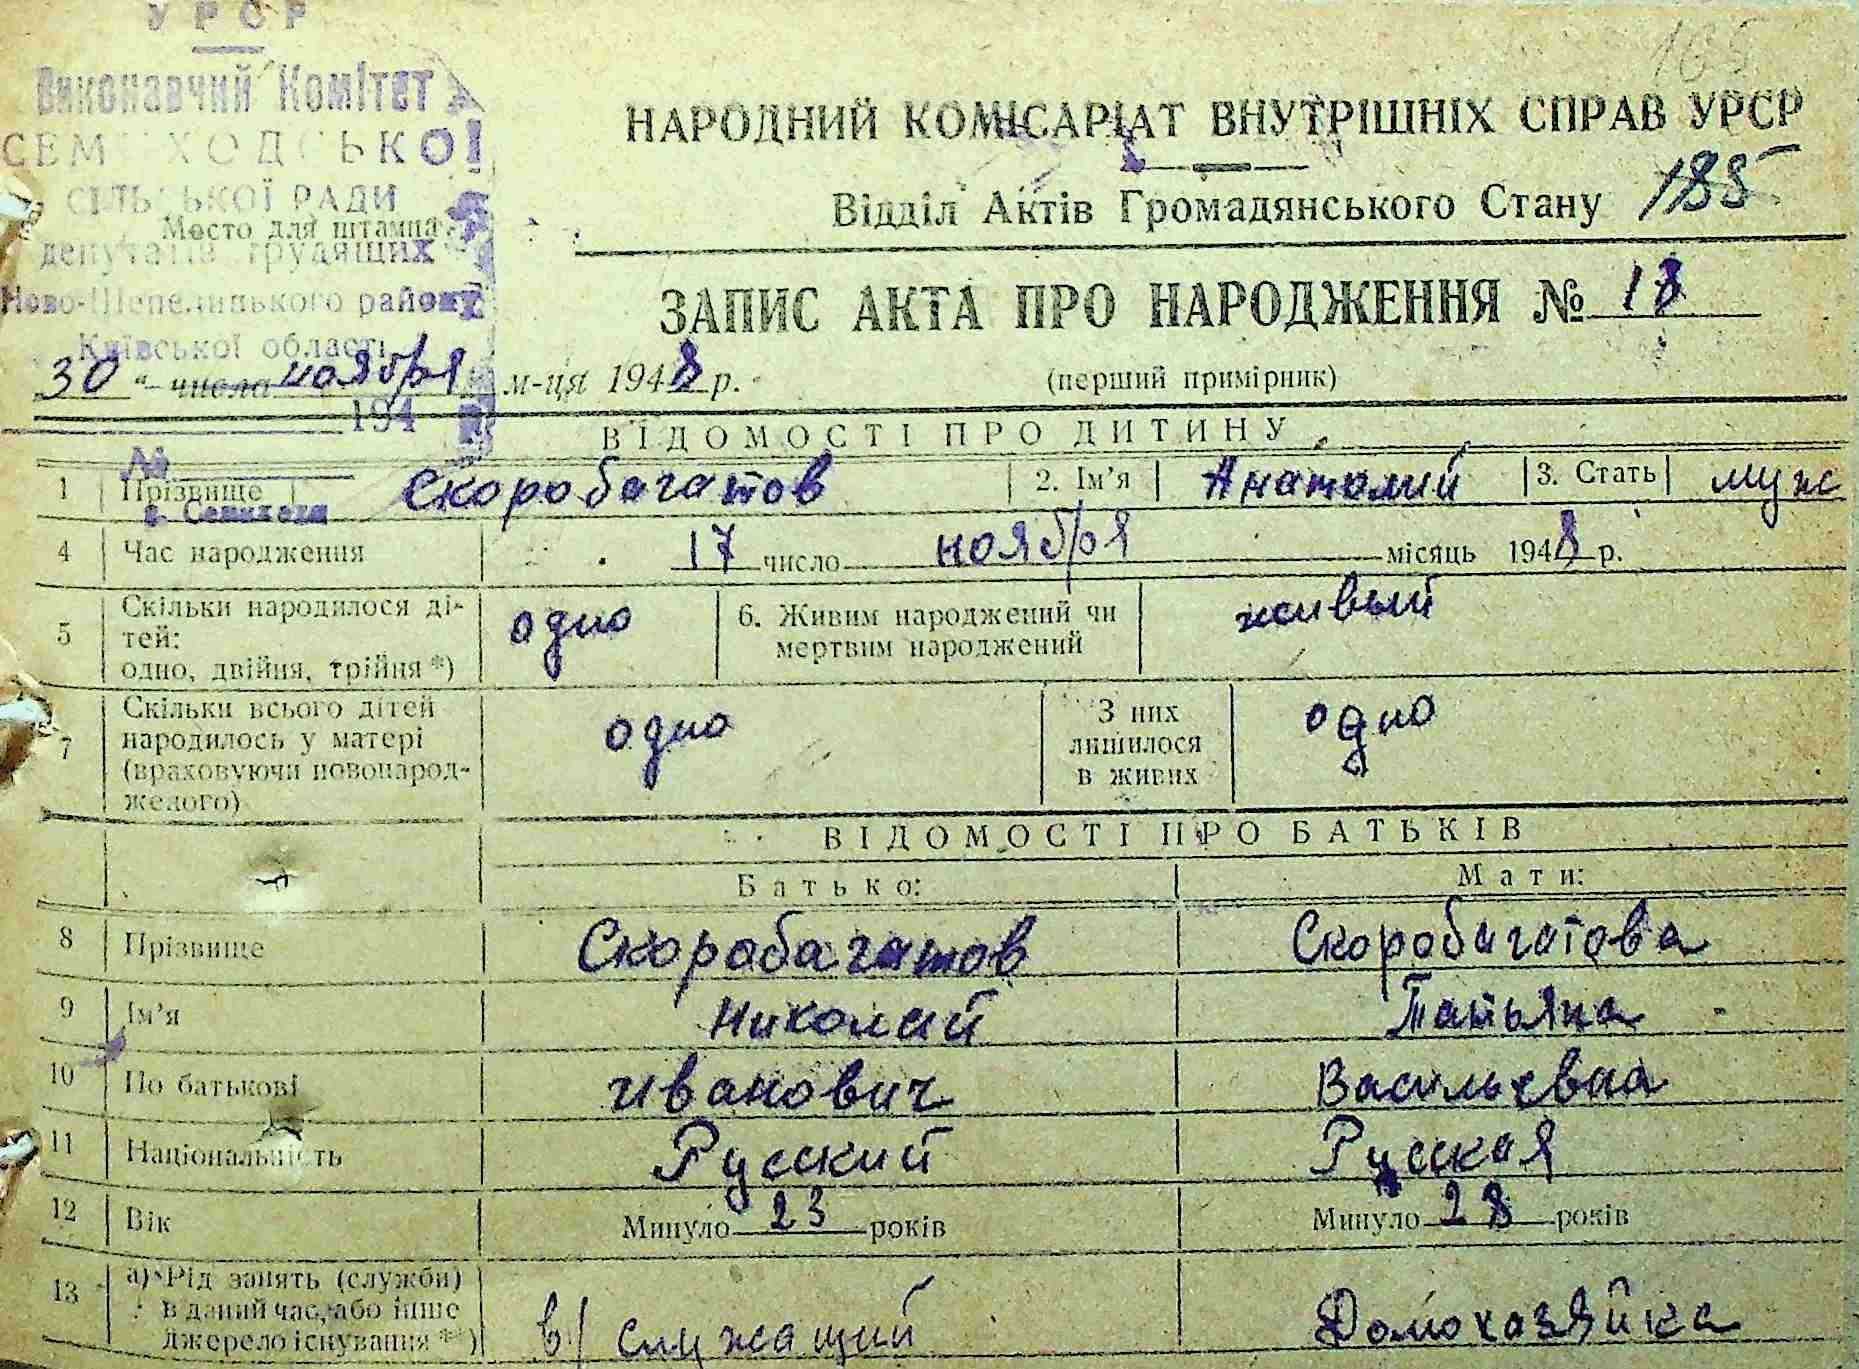 УРСР
165
Виконавчий Комітет
НАРОДНИЙ КОМІСАРІАТ ВНУТРІШНІХ СПРАВ УРСР
СІЛЬСЬКОЇ РАДИ
Відділ Актів Громадянського Стану 185
Место для штампа
депутатів трудящих
Київської області
ЗАПИС АКТА ПРО НАРОДЖЕННЯ № 18
30 " числа ноября м-ця 1948 р.
(перший примірник)
194
ВІДОМОСТІ ПРО ДИТИНУ
№
1 Прізвище Скоробагатов 2. Ім'я Анатолий 3. Стать муж
4 Час народження 17 число ноября місяць 1948 р.
5 Скільки народилося ді-
тей:
одно, двійня, трійня *) одно 6. Живим народжений чи
мертвим народжений живый
7 Скільки всього дітей
народилось у матері
(враховуючи новонарод-
женого) одно З них
лишилося
в живих одно
ВІДОМОСТІ ПРО БАТЬКІВ
Батько: Мати:
8 Прізвище Скоробагатов Скоробагатова
9 Ім'я Николай Татьяна
10 По батькові Иванович Васильевна
11 Національність Русский Русская
12 Вік Минуло 23 років Минуло 28 років
13 а) Рід занять (служби)
в даний час, або інше
джерело існування **) в/служащий Домохазяйка